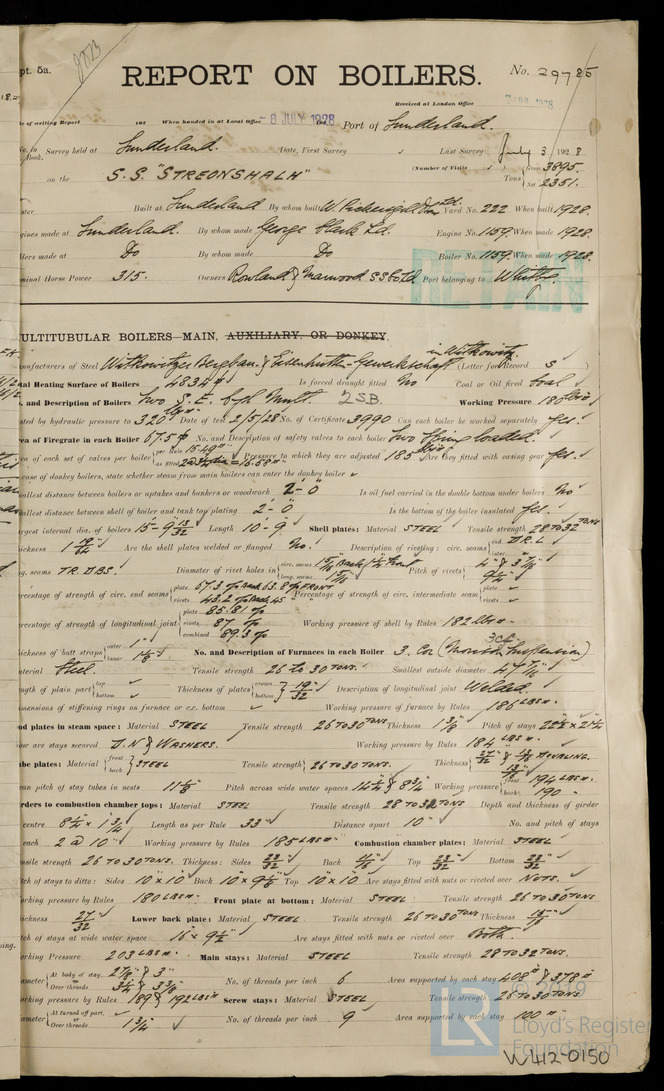 pt. 5a.
REPORT ON BOILERS.
No. 29785
Received at London Office
of writing Report 192 When handed in at Local Office - 8 JULY 1928 Port of Sunderland.
Survey held at Sunderland. Date, First Survey Last Survey July 3 1928
Book. (Number of Visits ) Gross 3895.
on the S.S. "STREONSHALH" Tons Net 2351.
Built at Sunderland By whom built W. Pickersgill & Sons Ltd. Yard No. 222 When built 1928.
gines made at Sunderland. By whom made George Clark Ld. Engine No. 1159. When made 1928.
lers made at Do By whom made Do Boiler No. 1159. When made 1928.
minal Horse Power 315. Owners Rowland & Marwood SS Co Ld Port belonging to Whitby
RETAIN
ULTITUBULAR BOILERS—MAIN, AUXILIARY, OR DONKEY.
anufacturers of Steel Witkowitzer Bergbau & Eisenhütten Gewerkschaft in Witkowitz. (Letter for Record S )
al Heating Surface of Boilers 4834 Is forced draught fitted No Coal or Oil fired Coal
and Description of Boilers Two S.E. Cyl Mult. 2 S.B. Working Pressure 180
ted by hydraulic pressure to 320 Date of test 2/5/28 No. of Certificate 3990 Can each boiler be worked separately Yes.
ea of Firegrate in each Boiler 67.5 No. and Description of safety valves to each boiler Two spring loaded
ea of each set of valves per boiler per Rule 15.49 as fitted = 16.58 Pressure to which they are adjusted 185 Are they fitted with easing gear Yes.
case of donkey boilers, state whether steam from main boilers can enter the donkey boiler
allest distance between boilers or uptakes and bunkers or woodwork 2-0 Is oil fuel carried in the double bottom under boilers No
allest distance between shell of boiler and tank top plating 2-0 Is the bottom of the boiler insulated Yes.
rgest internal dia. of boilers 15-9 13/32 Length 10-9 Shell plates: Material STEEL Tensile strength 28 TO 32 TONS
ickness Are the shell plates welded or flanged No. Description of riveting: circ. seams end. D.R.L inter.
g. seams TR. DBS. Diameter of rivet holes in circ. seams long. seams Pitch of rivets
rcentage of strength of circ. end seams plate rivets Percentage of strength of circ. intermediate seam plate rivets
rcentage of strength of longitudinal joint plate 85.81 % rivets 87 % combined 89.3 % Working pressure of shell by Rules 182 lbs
ickness of butt straps outer 1" inner 1 1/8 No. and Description of Furnaces in each Boiler 3. Cor (Morison Suspension) 3cf
aterial Steel. Tensile strength 26 to 30 TONS. Smallest outside diameter
ngth of plain part top bottom Thickness of plates crown bottom 19/32 Description of longitudinal joint Welded.
mensions of stiffening rings on furnace or c.c. bottom Working pressure of furnace by Rules 186 LBS
d plates in steam space: Material STEEL Tensile strength 26 TO 30 TONS Thickness 1 3/16 Pitch of stays
ow are stays secured D.N & WASHERS. Working pressure by Rules 184 LBS
be plates: Material front back STEEL Tensile strength 26 TO 30 TONS. Thickness 27/32 & 13/16 DOUBLING.
an pitch of stay tubes in nests 11 1/8 Pitch across wide water spaces 14 1/2 & 8 3/4 Working pressure front 194 LBS back 190
rders to combustion chamber tops: Material STEEL Tensile strength 28 TO 32 TONS Depth and thickness of girder
centre 8 1/4 x 1 3/4 Length as per Rule 33 Distance apart 10 No. and pitch of stays
each 2 @ 10 Working pressure by Rules 185 LBS Combustion chamber plates: Material STEEL
nsile strength 26 TO 30 TONS. Thickness: Sides 23/32 Back 11/16 Top 23/32 Bottom 23/32
tch of stays to ditto: Sides 10 x 10 Back 10 x 9 1/2 Top 10 x 10 Are stays fitted with nuts or riveted over NUTS.
orking pressure by Rules 180 LBS Front plate at bottom: Material STEEL Tensile strength 26 TO 30 TONS
ickness 27/32 Lower back plate: Material STEEL. Tensile strength 26 TO 30 TONS Thickness
tch of stays at wide water space 16 x 9 1/2 Are stays fitted with nuts or riveted over Both.
orking Pressure 203 LBS Main stays: Material STEEL Tensile strength 28 TO 32 TONS.
ameter At body of stay, or Over threads 2 7/8 & 3 No. of threads per inch 6 Area supported by each stay 408 & 378
orking pressure by Rules 189 & 192 LBS Screw stays: Material STEEL Tensile strength 26 TO 30 TONS
ameter At turned off part, or Over threads 1 3/4 No. of threads per inch 9 Area supported by each stay 100
© 2019
LR
Lloyd's Register
Foundation
W412-0150